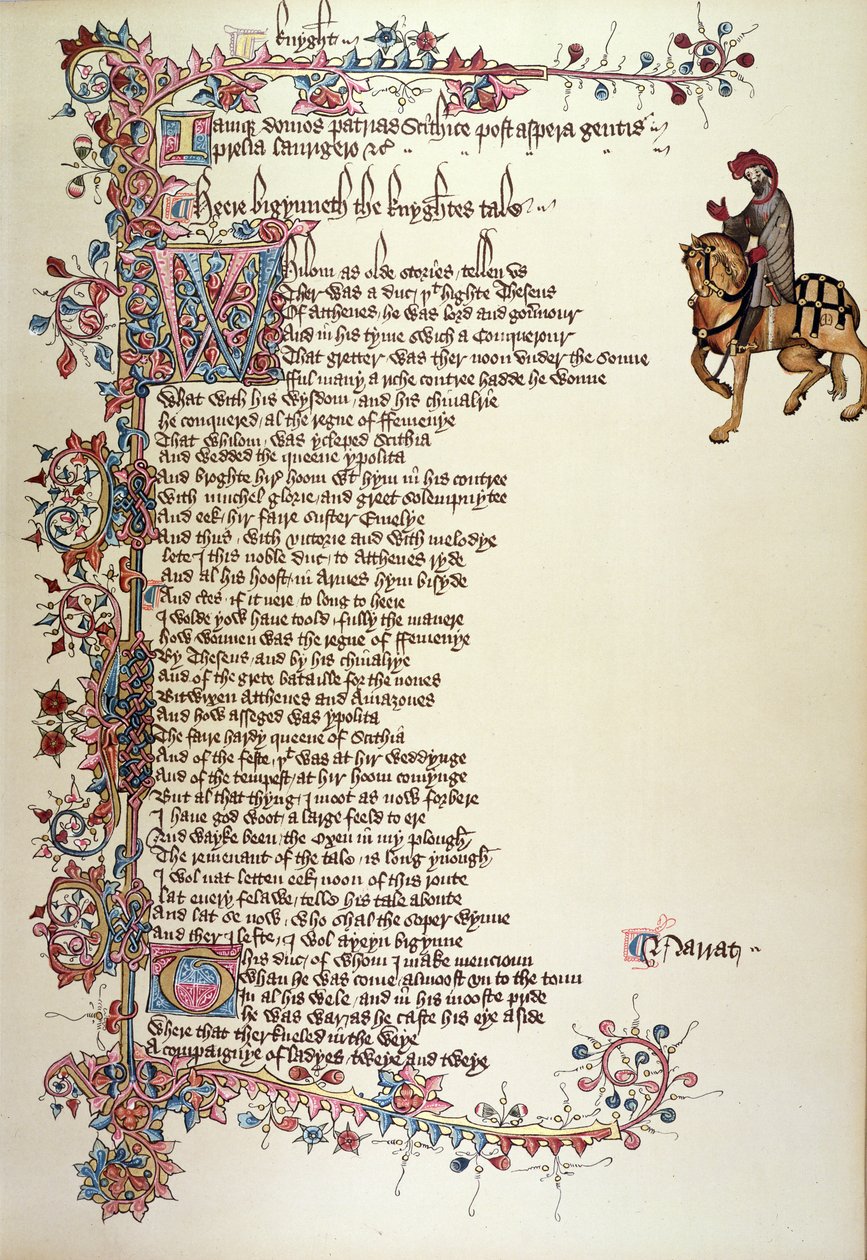 knyght
Iamq domos patrias Scithice post aspera gentis
prelia laurigero &c
Heere bigynneth the knyghtes tale
Whilom as olde stories tellen us
Ther was a duc þt highte Theseus
Of Atthenes he was lord and gouernour
And in his tyme swich a Conquerour
That gretter was ther noon vnder the sonne
fful many a riche contree hadde he wonne
What with his wysdom and his chiualrie
he conquered al the regne of ffemenye
That whilom was ycleped Scithia
And wedded the queene ypolita
And broghte hire hoom wt hym in his contree
With muchel glorie and greet solempnytee
And eek hir faire suster Emelye
And thus with victorie and with melodye
lete I this noble duc to Atthenes ryde
And al his hoost in Armes hym bisyde
And certes if it nere to long to heere
I wolde yow haue toold fully the manere
how wonnen was the regne of ffemenye
By Theseus and by his chiualrye
And of the grete bataille for the nones
Bitwixen Atthenes and Amazones
And how asseged was ypolita
The faire hardy queene of Scithia
And of the feste þt was at hir weddynge
And of the tempest at hir hoom comynge
But al that thyng I moot as now forbere
I haue god woot a large feeld to ere
And wayke been the Oxen in my plough
The remenant of the tale is long ynough
I wol nat letten eek noon of this route
lat euery felawe telle his tale aboute
And lat se now who shal the soper wynne
And ther I lefte I wol ayeyn bigynne
Narrat
This duc of whom I make mencioun
Whan he was come almoost vn to the toun
In al his wele and in his mooste pride
he was war as he caste his eye aside
Where that ther kneled in the weye
A compaignye of ladyes tweye and tweye